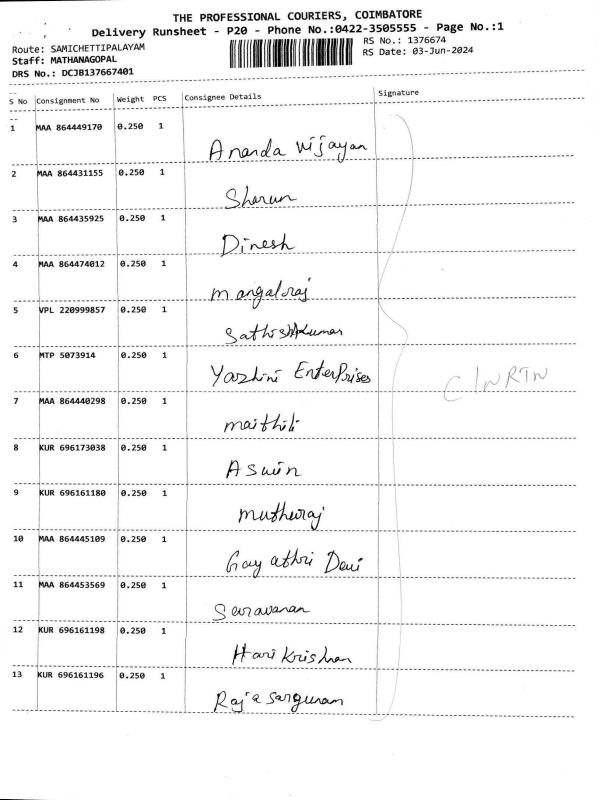 THE PROFESSIONAL COURIERS, COIMBATORE
Delivery Runsheet - P20 - Phone No.:0422-3505555 - Page No.:1
Route: SAMICHETTIPALAYAM
RS No.: 1376674
Staff: MATHANAGOPAL
RS Date: 03-Jun-2024
DRS No.: DCJB137667401
S No Consignment No Weight PCS Consignee Details Signature
1 MAA 864449170 0.250 1
Ananda Vijayan
2 MAA 864431155 0.250 1
Sharun
3 MAA 864435925 0.250 1
Dinesh
4 MAA 864474012 0.250 1
Mangalraj
5 VPL 220999857 0.250 1
Sathishkumar
6 MTP 5073914 0.250 1
Yazhini Enterprises
7 MAA 864440298 0.250 1
maithili
8 KUR 696173038 0.250 1
Aswin
9 KUR 696161180 0.250 1
Muthuraj
10 MAA 864445109 0.250 1
Gayathri Devi
11 MAA 864453569 0.250 1
Saravanan
12 KUR 696161198 0.250 1
Hari Krishnan
13 KUR 696161196 0.250 1
Raja Sargunam